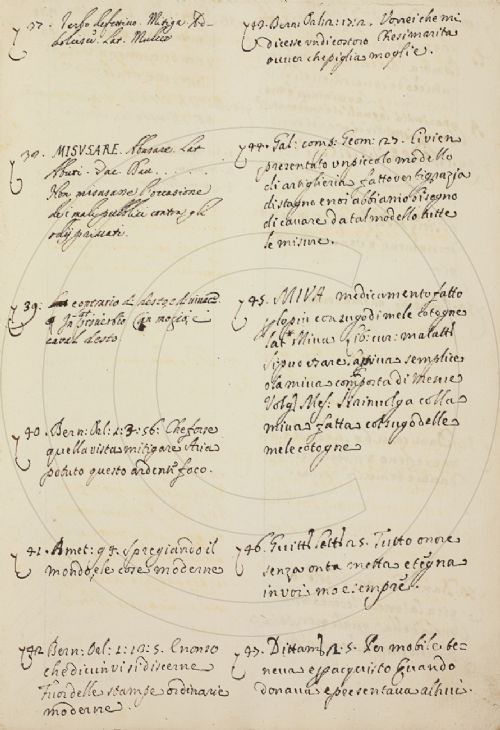 37.
Lat. Mulceo
38. MISUSARE. Abusare. Lat
Abuti. Dav.
Non misusare l'occasione
de i mali pubblici contra gli
odij privati.
39. contrario di
In proverbio
40. Bern: Orl: 1: 3: 56: Che forse
quella vista mitigare avia
potuto questo ardentiss foco.
41. Amet: 93. Spregiando il
mondo, e le cose moderne
42 Bern: Orl: 1: 12: 5. E non so
che di cui vi si discerne
Fuor delle stampe ordinarie
moderne.
43. Bern: Catr: Vorrei che mi
dicesse un di costoro Chesimarita
ovver che piglia moglie.
44. Gal: comp: Geom: 27. Ci vien
presentato un piccolo modello
di artiglieria fatto verbi grazia
di stagno e noi abbiamo bisogno
di cavare da tal modello tutte
le misure.
45. MIVA medicamento fatto
con sugo di mele cotogne
lat. Miva. lib: cur: malatt
Si puo usare la miva semplice
o la miva composta di Mesue
Volg. Mes: Si rinvolga colla
miva fatta col sugo delle
mele cotogne
46. Guitt. Lett. 25. Tutto onore
senza onta metta e tegna
in voi mo e sempre.
47. Dittam. 1. 5. Per mobile te-
neva e per acquisto Quando
donava e presentava altrui.